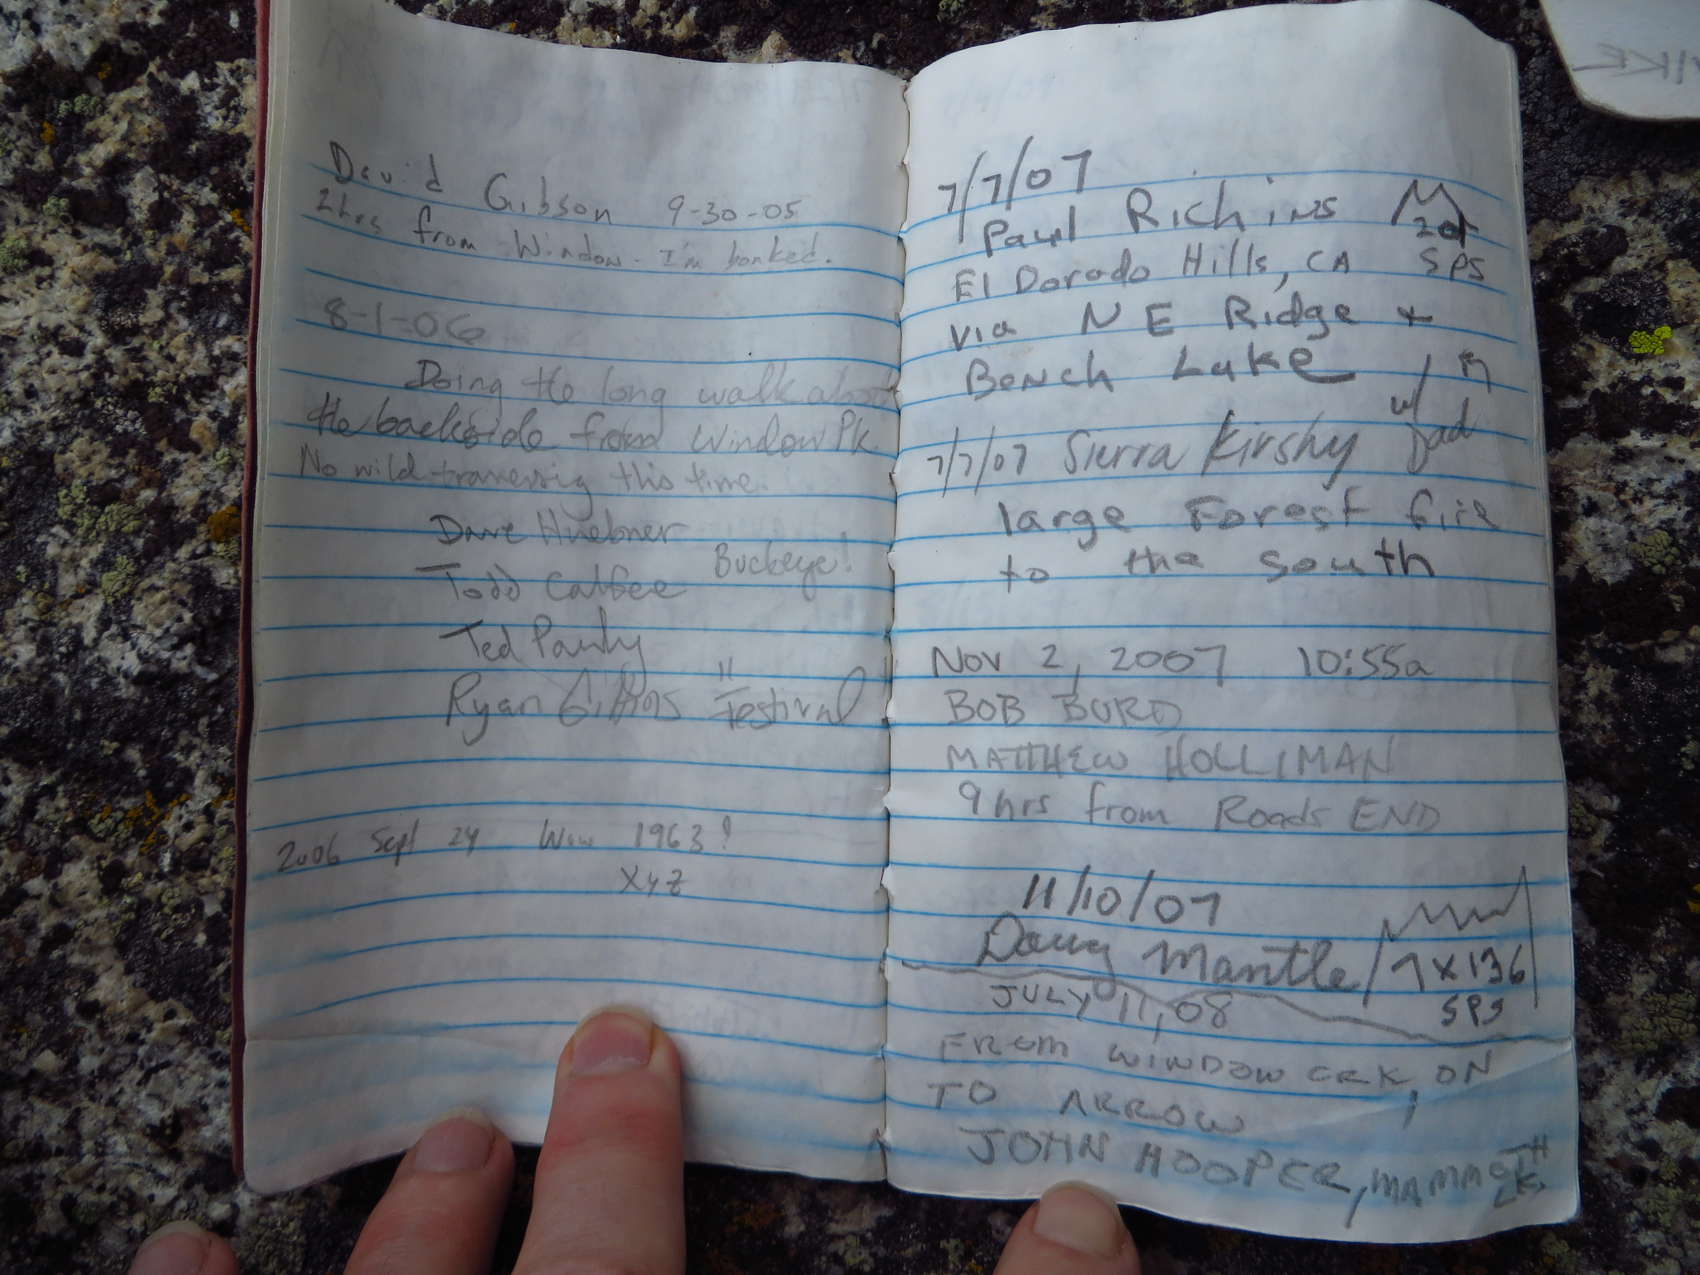 David Gibson 9-30-05
2hrs from Window. I'm bonked.
8-1-06
Doing the long walk about
the backside from Window Pk
No wild traversing this time.
Dave Huebner
Buckeye!
Todd Calfee
Ted Pauly
Ryan Gibbons "Festival
2006 Sept 24 Wow 1963!
XYZ
7/7/07
Paul Richins
20x
SPS
El Dorado Hills, CA
via NE Ridge +
Bench Lake
7/7/07 Sierra Kirshy w/ Dad
large Forest fire
to the south
Nov 2, 2007 10:55a
BOB BURD
MATTHEW HOLLIMAN
9hrs from Roads END
11/10/07
Doug Mantle 7X136
SPS
JULY 11, 08
FROM WINDOW CRK, ON
TO ARROW
JOHN HOOPER, MAMMOTH
LK.
VIKE